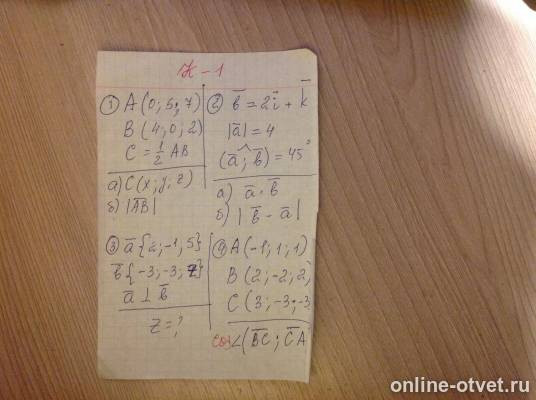 К-1
① A (0; 5; 7)
B (4; 0; 2)
C = 1/2 AB
а) C (x; y; z)
б) |AB|
② b = 2i + k
|a| = 4
(a; b) = 45°
а) a · b
б) |b - a|
③ a {2; -1; 5}
b {-3; -3; z}
a ⊥ b
z = ?
④ A (-1; 1; 1)
B (2; -2; 2;
C (3; -3; -3
cos∠(BC; CA
online-otvet.ru